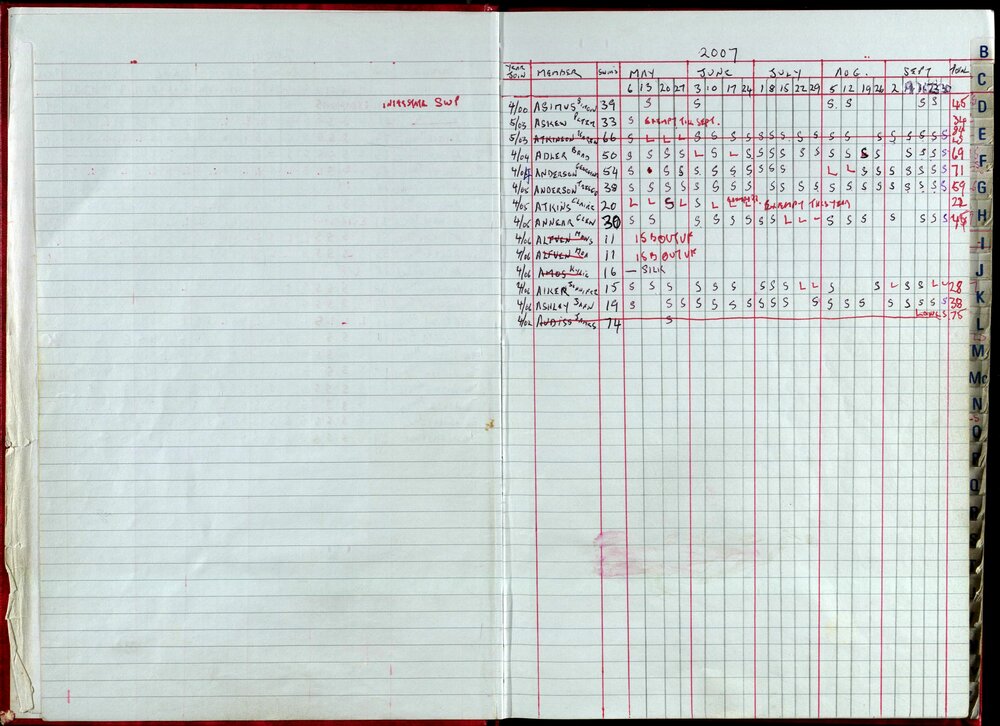 INTERSTATE SWP
2007
YEAR JOIN MEMBER SWIMS MAY JUNE JULY AUG. SEPT TOTAL
6 13 20 27 3 10 17 24 1 8 15 22 29 5 12 19 26 2 9 16 23 30
4/00 ASIMUS SIMON 39 S S S S S S 45
5/03 ASKEW PETER 33 S EXEMPT TILL SEPT. 34
5/03 ATKINSON KAREN 66 S L L L S S S S S S S S S S S S S S S S S
4/04 ADLER BRAD 50 S S S S L S L S S S S S S S S S S S S S S 69
ANDERSON 54 S S S S S S S S S S S L L S S S S S S S 71
4/05 ANDERSON 38 S S S S S S S S S S S S S S S S S S S S S 59
4/05 ATKINS CLAIRE 20 L L S L S L L EXEMPT THIS YEAR 22
4/06 ANNEAR GLEN 30 S S S S S S S S L L S S S S S S S
4/06 11 IS BOUTUF
4/06 11 IS BOUTUF
4/06 AMOS KYLIE 16 — SICK
4/06 AIKER JENNIFER 15 S S S S S S S S S L L S S L S S L L 28
4/06 ASHLEY 19 S S S S S S S S S S S S S S S S S S S 38
4/02 AUDISS JAMES 74 S LONG S 75
B
C
D
E
F
G
H
I
J
K
L
M
Mc
N
O
P
Q
R
S